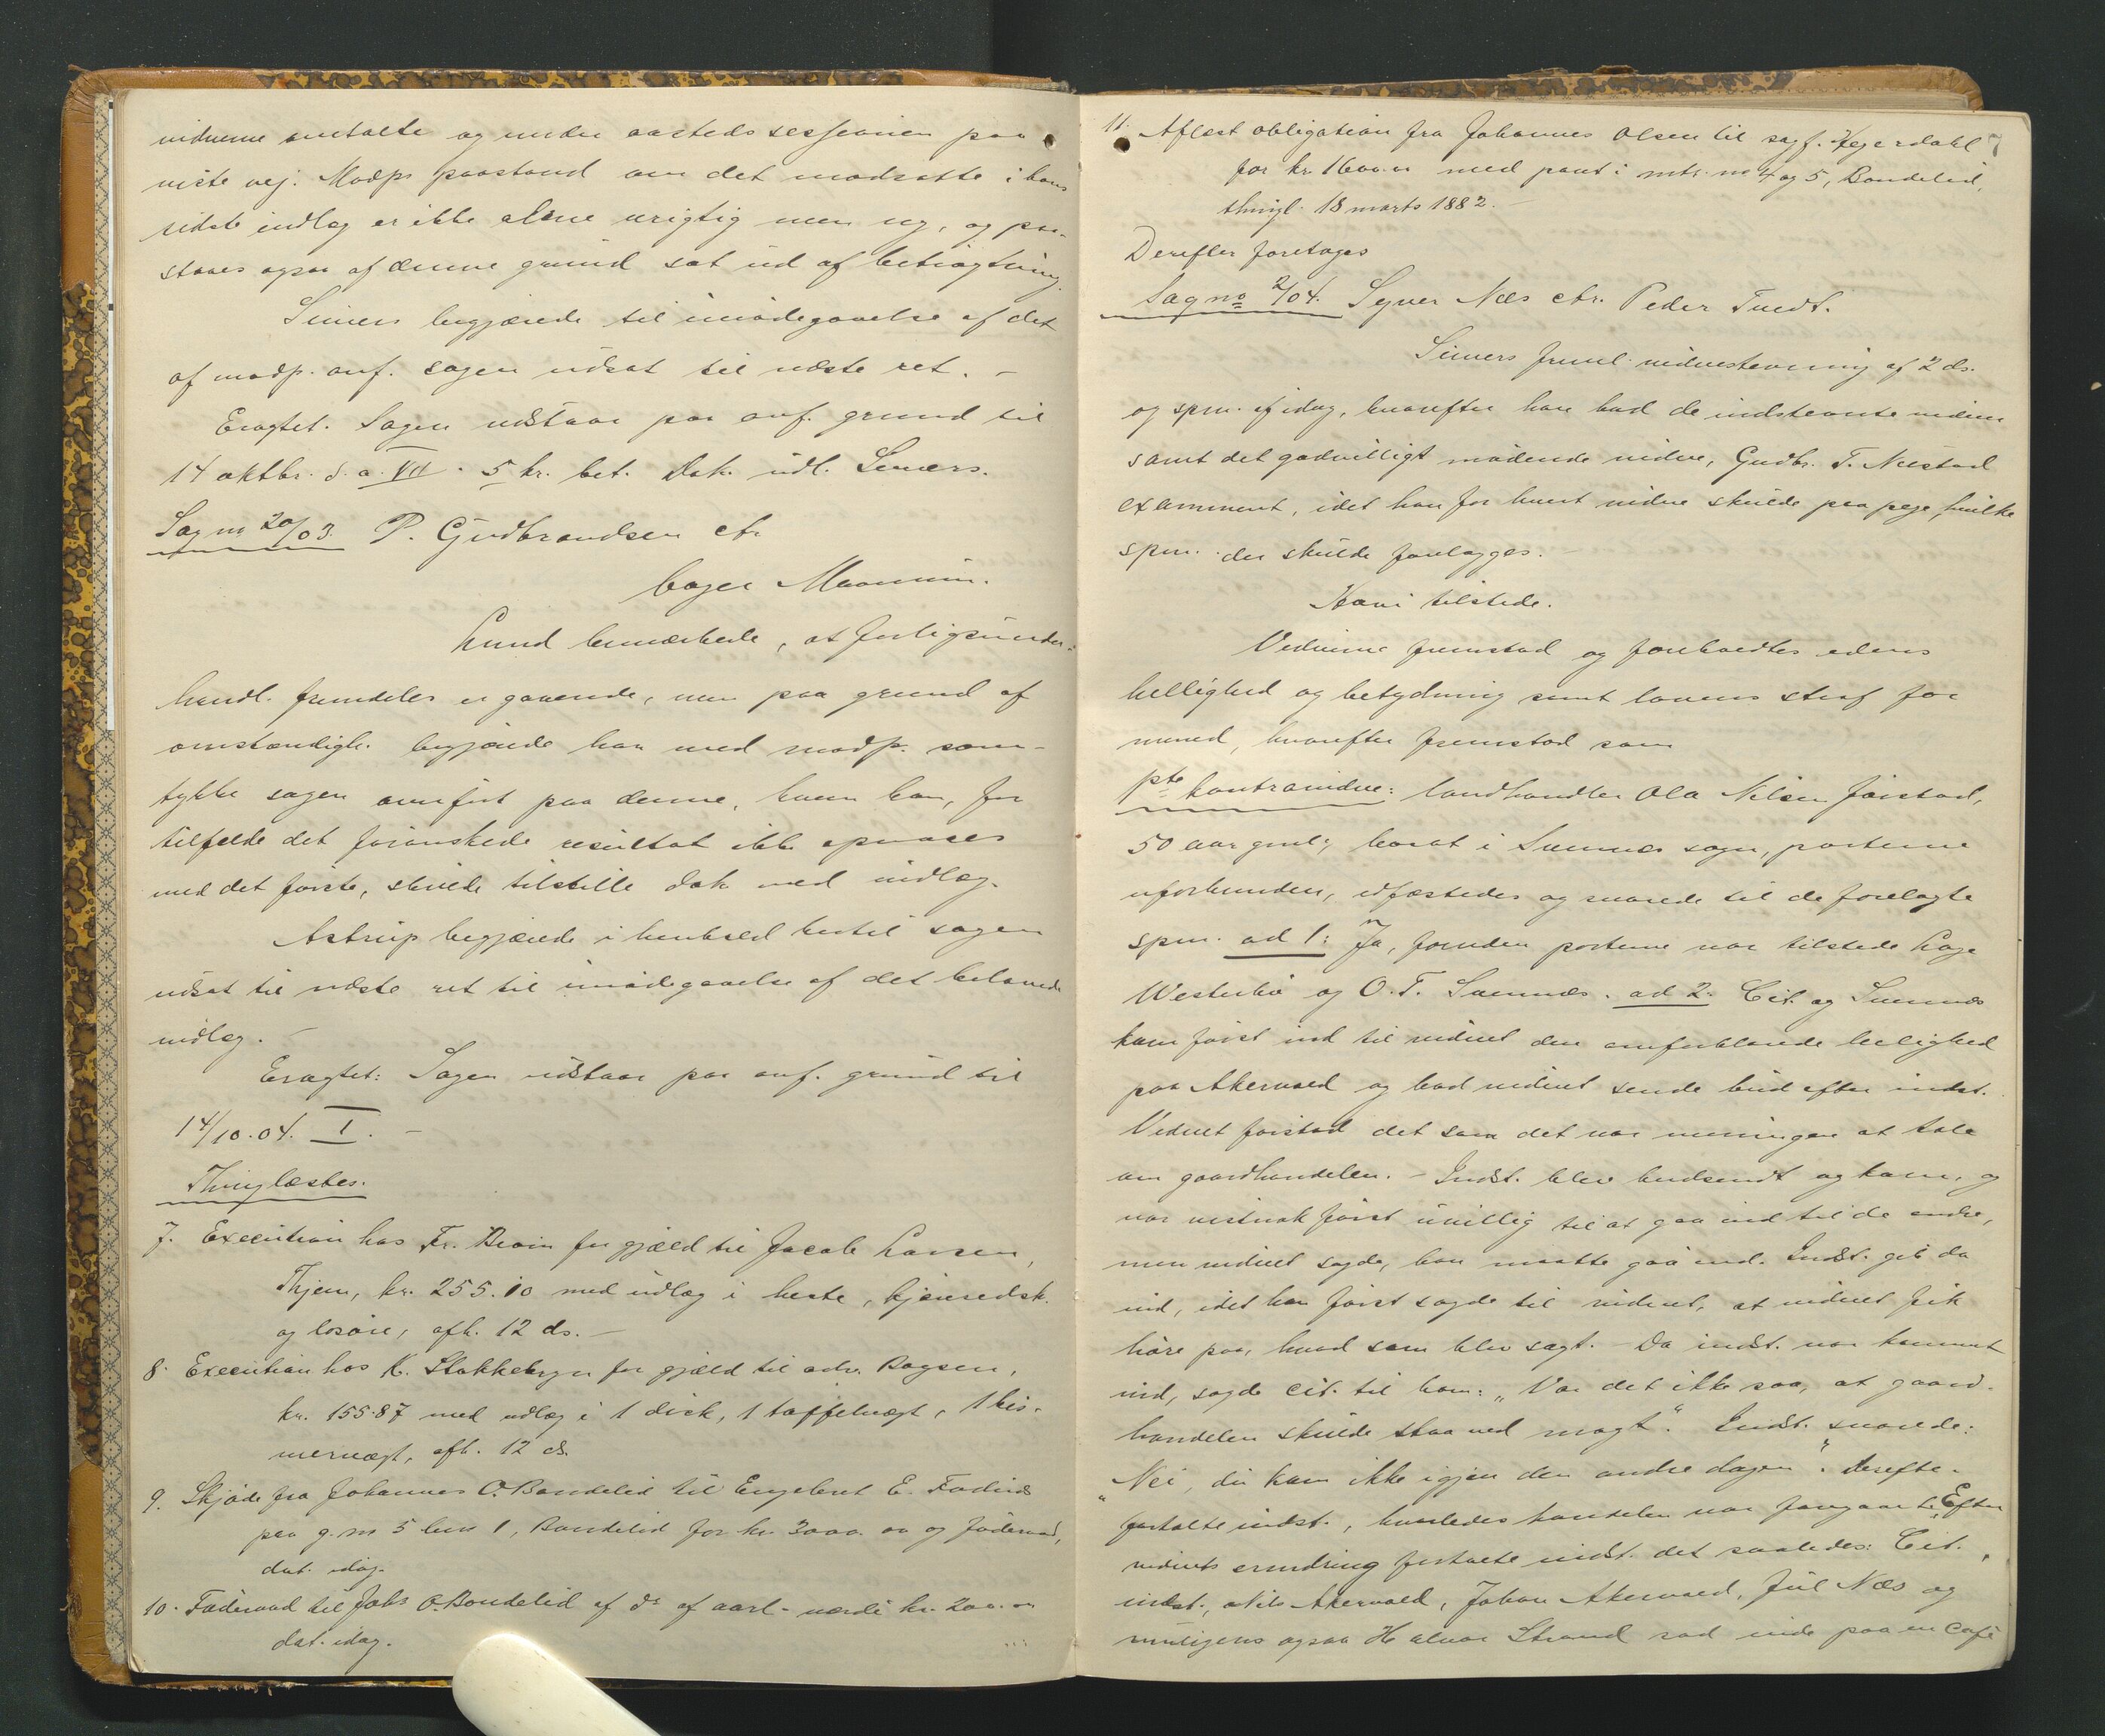 vidnerne omtalte og under aastedssessionen paa
viste vej. Modps paastand om det modsatte i hans
sidste indlæg er ikke alene urigtig men ny, og paa-
staaes ogsaa af denne grund sat ud af betragtning.
Simers begjærede til imødegaaelse af det
af modp. anf. sagen udsat til næste ret. –
Eragtet. Sagen udstaar paa anf. grund til
14 oktbr. d. a. VII. 5 kr. bet. Dok. udl. Siemers.
Sag no 20/03. P. Gudbrandsen ctr.
Lund bemærkede, at forligsunder-
handl. fremdeles er gaaende, men paa grund af
omstændigh. begjærede han med modp. sam-
tykke sagen overført paa denne, hvem han, for
tilfælde det forønskede resultat ikke opnaaes
med det første, skulde tilstille dok. med indlæg.
Astrup begjærede i henhold hertil sagen
udsat til næste ret til imødegaaelse af det belovede
indlæg. –
Eragtet: Sagen udstaar paa anf. grund til
14/10.04. I. –
Thinglæstes.
7. Execution hos Fr. for gjæld til Jacob Larsen,
Thjem, kr. 255.10 med udlæg i heste, kjøreredsk.
og løsøre, afh. 12 ds. –
8. Execution hos K. Stakkebryn for gjæld til adv. Bogsen,
kr. 155.87 med udlæg i 1 disk, 1 taffelvægt, 1 bis-
mervægt, afh. 12 ds.
9. Skjøde fra Johannes O. Bondelid til Engebret E.
paa g. no 5 br. no 1, Bondelid for kr. 3000.00 og føderaad,
dat. idag.
10. Føderaad til Johs O. Bondelid af ds af aarl. værdi kr. 200.00
dat. idag.
11. Aflæst obligation fra Johannes Olsen til sagf. Hejerdahl 7
for kr. 1600.00 med pant i mtr. no 4 og 5, Bondelid,
thingl. 18 marts 1882. –
Derefter foretages
Sag no 2/04. Syver Næs ctr. Peder Tuedt.
Simers freml. vidnestevning af 2 ds.
og spm. af idag, hvorefter han bad de indstevnte vidner
samt det godvilligt mødende vidne, Gudbr. T. Nerstad
examineret, idet han for hvert vidne skulde paapege, hvilke
spm. der skulde forelægges. –
tilstede.
Vidnerne fremstod og foreholdtes edens
hellighed og betydning samt lovens straf for
mened, hvorefter fremstod som
1ste kontravidne: landhandler Ola Nilsen Jørstad,
50 aar gml., bosat i Svennes sogn, parterne
uforbunden, edfæstedes og svarede til de forelagte
spm. ad 1: Ja, foruden parterne var tilstede Lage
Westerbø og O. T. Svennes. ad 2. Cit. og Svennes
kom først ind til vidnet den omforklarede leilighed
paa Akervold og bad vidnet sende bud efter indst.
Vidnet forstod det som det var meningen at tale
om gaardhandelen. – Indst. blev budsendt og kom, og
var vistnok først uvillig til at gaa ind til de andre,
men vidnet sagde, han maatte gaa ind. Indst. gik da
ind, idet han først sagde til vidnet, at vidnet fik
høre paa, hvad som blev sagt. – Da indst. var kommet
ind, sagde cit. til ham: "Var det ikke saa, at gaard-
handelen skulde staa ved magt". Indst. svarede:
"Nei, du kom ikke igjen den andre dagen". Derefter
fortalte indst., hvorledes handelen var foregaaet. Efter
vidnets erindring fortalte indst. det saaledes: Cit.,
indst., Nils Akervold, Johan Akervold, Jul Næs og
muligens ogsaa Halvor Strand sad inde paa en café